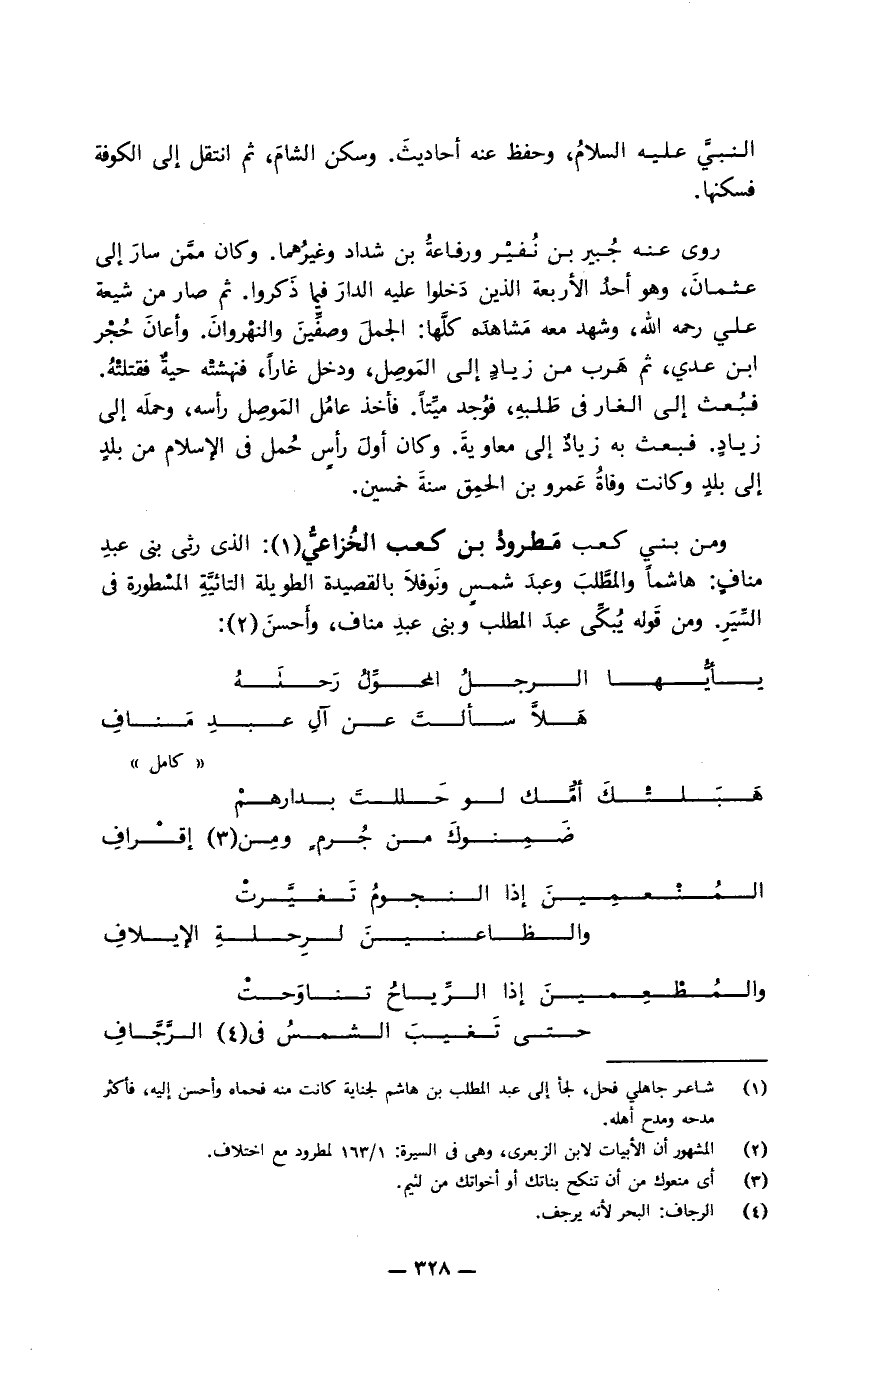 النبيَّ عليه السلامُ، وحفظ عنه أحاديثَ. وسكن الشامَ، ثم انتقل إلى الكوفة
فسكنها.
روى عنه جُبير بن نُفيْر ورفاعةُ بن شداد وغيرُهما. وكان ممَّن سارَ إلى
عثمانَ، وهو أحدُ الأربعة الذين دَخلوا عليه الدارَ فيما ذَكروا. ثم صار من شيعة
علي رحمه الله، وشهد معه مَشاهدَه كلَّها: الجملَ وصفِّينَ والنهْروانَ. وأعانَ حُجْر
ابن عدي، ثم هَرب من زيادٍ إلى المَوصِل، ودخل غاراً، فنهشتْه حيةٌ فقتلتْهُ.
فبُعث إلى الغار فى طَلبهِ، فوُجد ميِّتاً. فأخذ عامُل المَوصِل رأسه، وحملَه إلى
زيادٍ. فبعث به زيادٌ إلى معاويةَ. وكان أولَ رأسٍ حُمل فى الإسلام من بلدٍ
إلى بلدٍ وكانت وفاةُ عَمرو بن الحَمِق سنةَ خمسين.
ومن بني كعب مَطرودُ بن كعب الخُزاعيُّ(١): الذى رثى بنى عبدِ
منافٍ: هاشماً والمطَّلبَ وعبدَ شمسٍ ونَوفلاً بالقصيدة الطويلة التائيَّةِ المسْطورة فى
السِّيَرِ. ومن قَوله يُبكِّى عبدَ المطلب وبنى عبدِ مناف، وأحسنَ(٢):
يأيُّها الرجلُ المحوِّلُ رَحلَهُ
هَلاَّ سألتَ عن آلِ عبدِ مَنافِ
« كامل »
هَبَلتْكَ أمُّك لو حَللتَ بدارهمْ
ضَمِنوكَ من جُرمٍ ومِن(٣) إقْرافِ
المُنْعمِينَ إذا النجومُ تَغيَّرتْ
والظاعنينَ لرِحلةِ الإيلافِ
والمُطْعِمينَ إذا الرِّياحُ تناوَحتْ
حتى تَغيبَ الشمسُ فى(٤) الرَّجَّافِ
(١) شاعر جاهلي فحل، لجأ إلى عبد المطلب بن هاشم لجناية كانت منه فحماه وأحسن إليه، فأكثر
مدحه ومدح أهله.
(٢) المشهور أن الأبيات لابن الزبعرى، وهى فى السيرة: ١٦٣/١ لمطرود مع اختلاف.
(٣) أى منعوك من أن تنكح بناتك أو أخواتك من لئيم.
(٤) الرجاف: البحر لأنه يرجف.
— ٣٢٨ —